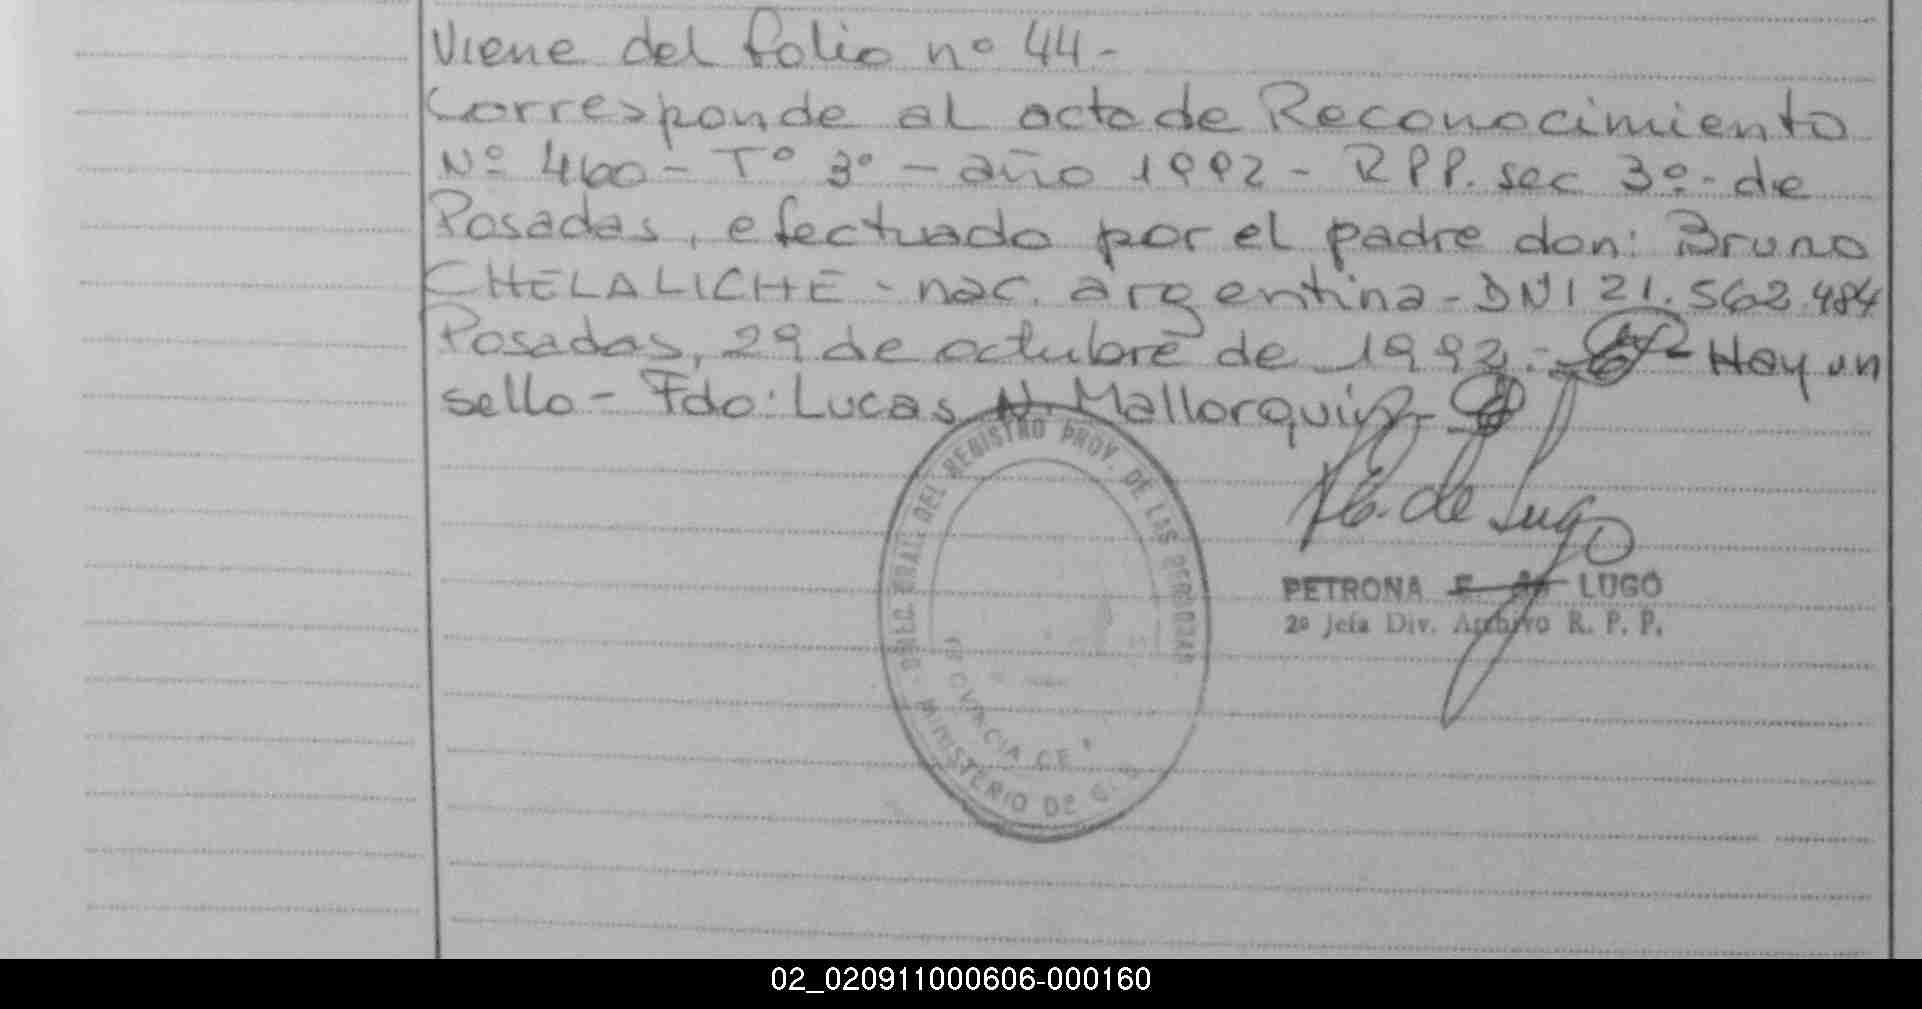 Viene del folio nº 44-
Corresponde al acta de Reconocimiento
Nº 460 - Tº 3º - año 1992 - RPP. sec 3º - de
Posadas, efectuado por el padre don: Bruno
CHELALICHE - nac. argentina - DNI 21.562.484
Posadas, 29 de octubre de 1992 - Hay un
sello - Fdo: Lucas N. Mallorquin -
de Lugo
DIREC. GRAL. DEL REGISTRO PROV. DE LAS PERSONAS
PROVINCIA DE
MINISTERIO DE
PETRONA E. de LUGO
2º Jefa Div. Archivo R. P. P.
02_020911000606-000160